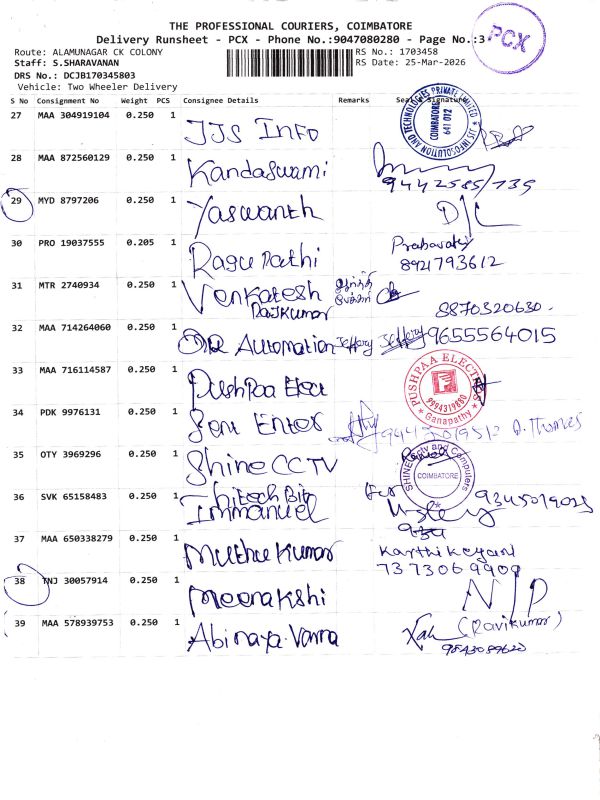 THE PROFESSIONAL COURIERS, COIMBATORE
Delivery Runsheet - PCX - Phone No.:9047080280 - Page No.:3
PCX
Route: ALAMUNAGAR CK COLONY RS No.: 1703458
Staff: S.SHARAVANAN RS Date: 25-Mar-2026
DRS No.: DCJB170345803
Vehicle: Two Wheeler Delivery
S No Consignment No Weight PCS Consignee Details Remarks Seal & Signature
27 MAA 304919104 0.250 1 JJS INFO
COIMBATORE 641 012
28 MAA 872560129 0.250 1 Kandaswami
29 MYD 8797206 0.250 1 Yaswanth D/L
30 PRO 19037555 0.205 1 Ragupathi
8921793612
31 MTR 2740934 0.250 1 Venkatesh
Rajkumar 8870320630
32 MAA 714264060 0.250 1 Automation Jeffery Jeffery 9655564015
33 MAA 716114587 0.250 1 Pushpaa Elect
PUSHPAA ELECT
9994319880
Ganapathy
34 PDK 9976131 0.250 1 D. Thomas
35 OTY 3969296 0.250 1 Shine CCTV
COIMBATORE
36 SVK 65158483 0.250 1 Hitech Bio
Immanuel For
37 MAA 650338279 0.250 1 Muthu Kumar Karthikeyan
7373069909
38 TNJ 30057914 0.250 1 Meenakshi N/P
39 MAA 578939753 0.250 1 Abinaya Varna (Ravikumar)